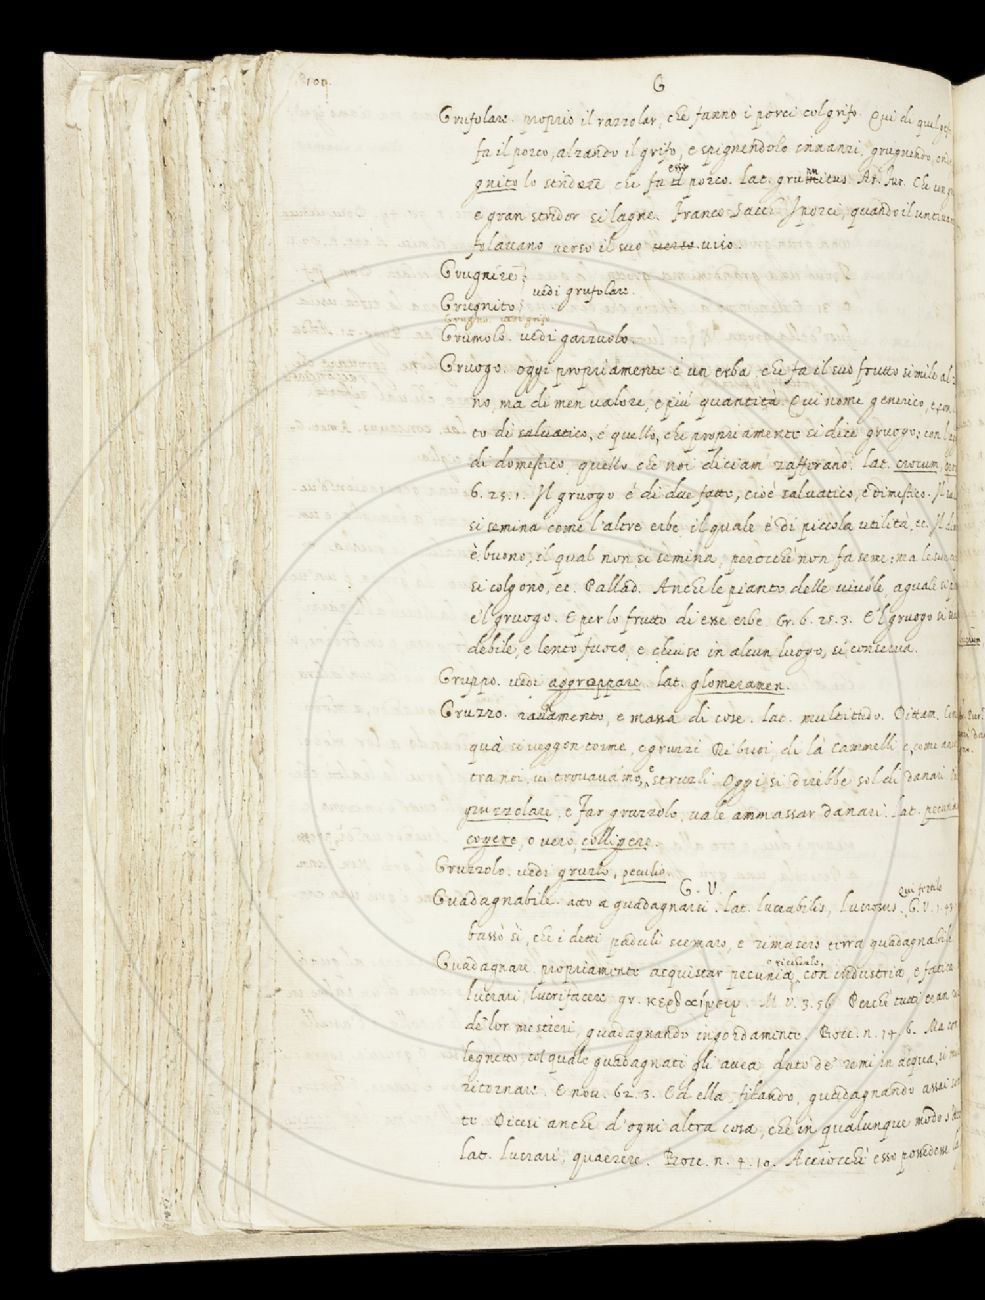 G
Grufolare. proprio il razzolar, che fanno i porci col grifo. Qui di quel
fa il porco, alzando il grifo, e spignendolo innanzi, grugnendo,
gnito lo stridore che fa esso porco. lat. grunnitus. Ar. fur. Che con
e gran stridor si lagne. Franco Sacch. I porci, quando il
folavano verso il suo verso viso.
Grugnire
vedi grufolare.
Grugnito
Grugno. vedi grifo
Grumolo. vedi garzuolo.
Gruogo. oggi propriamente è un erba, che fa il suo frutto simile al
no, ma di men valore, e più quantità. Qui nome generico, e, con
to di salvatico, è quello, che propriamente si dice gruogo; con l
di domestico, quello che noi diciam zafferano. lat. crocum,
6. 25. 1. Il gruogo è di due fatto, cioè salvatico, e dimestico. Il
si semina come l'altre erbe il quale è di piccola utilità, ec. Il
è buono, il qual non si semina, perocchè non fa seme: ma le
si colgono, ec. Pallad. Anche le piante delle viuole,
e'l gruogo. E per lo frutto di esse erbe. Cr. 6. 25. 3. E'l gruogo si
debile, e lento fuoco, e chiuso in alcun luogo, si conserva.
Gruppo. vedi aggroppare. lat. glomeramen.
Gruzzo. raunamento, e massa di cose. lat. multitudo. Dittam.
quà si veggon torme, e gruzzi Di buoi, di là cammelli e, come
tra noi, vi trovavamo, e struzzi. Oggi si direbbe sol di danari
gruzzolare, e Far gruzzolo, vale ammassar danari. lat. pecunia
cogere, o vero, colligere.
Gruzzolo. vedi gruzzo, peculio.
G. V.
Guadagnabile. atto a guadagnarsi. lat. lucrabilis, lucrosus. Qui fertile G. V.
bassò sì, che i detti paduli scemaro, e rimasero terra guadagnabile
Guadagnare. propriamente acquistar pecunia, o ricchezze, con industria, e fatica
lucrari, lucrifacere gr. κερδαίνειν. M. V. 3. 56. Perchè tutti eran
de' lor mestieri, guadagnando ingordamente. Bocc. n. 14. 6. Ma con
legnetto, col quale guadagnati gli avea, dato de' remi in acqua, si
ritornare. E nov. 62. 3. Ed ella, filando, guadagnando assai
to. Dicesi anche d'ogni altra cosa, che in qualunque modo
lat. lucrari, quaerere. Bocc. n. 4. 10. Acciocchè esso possedesse